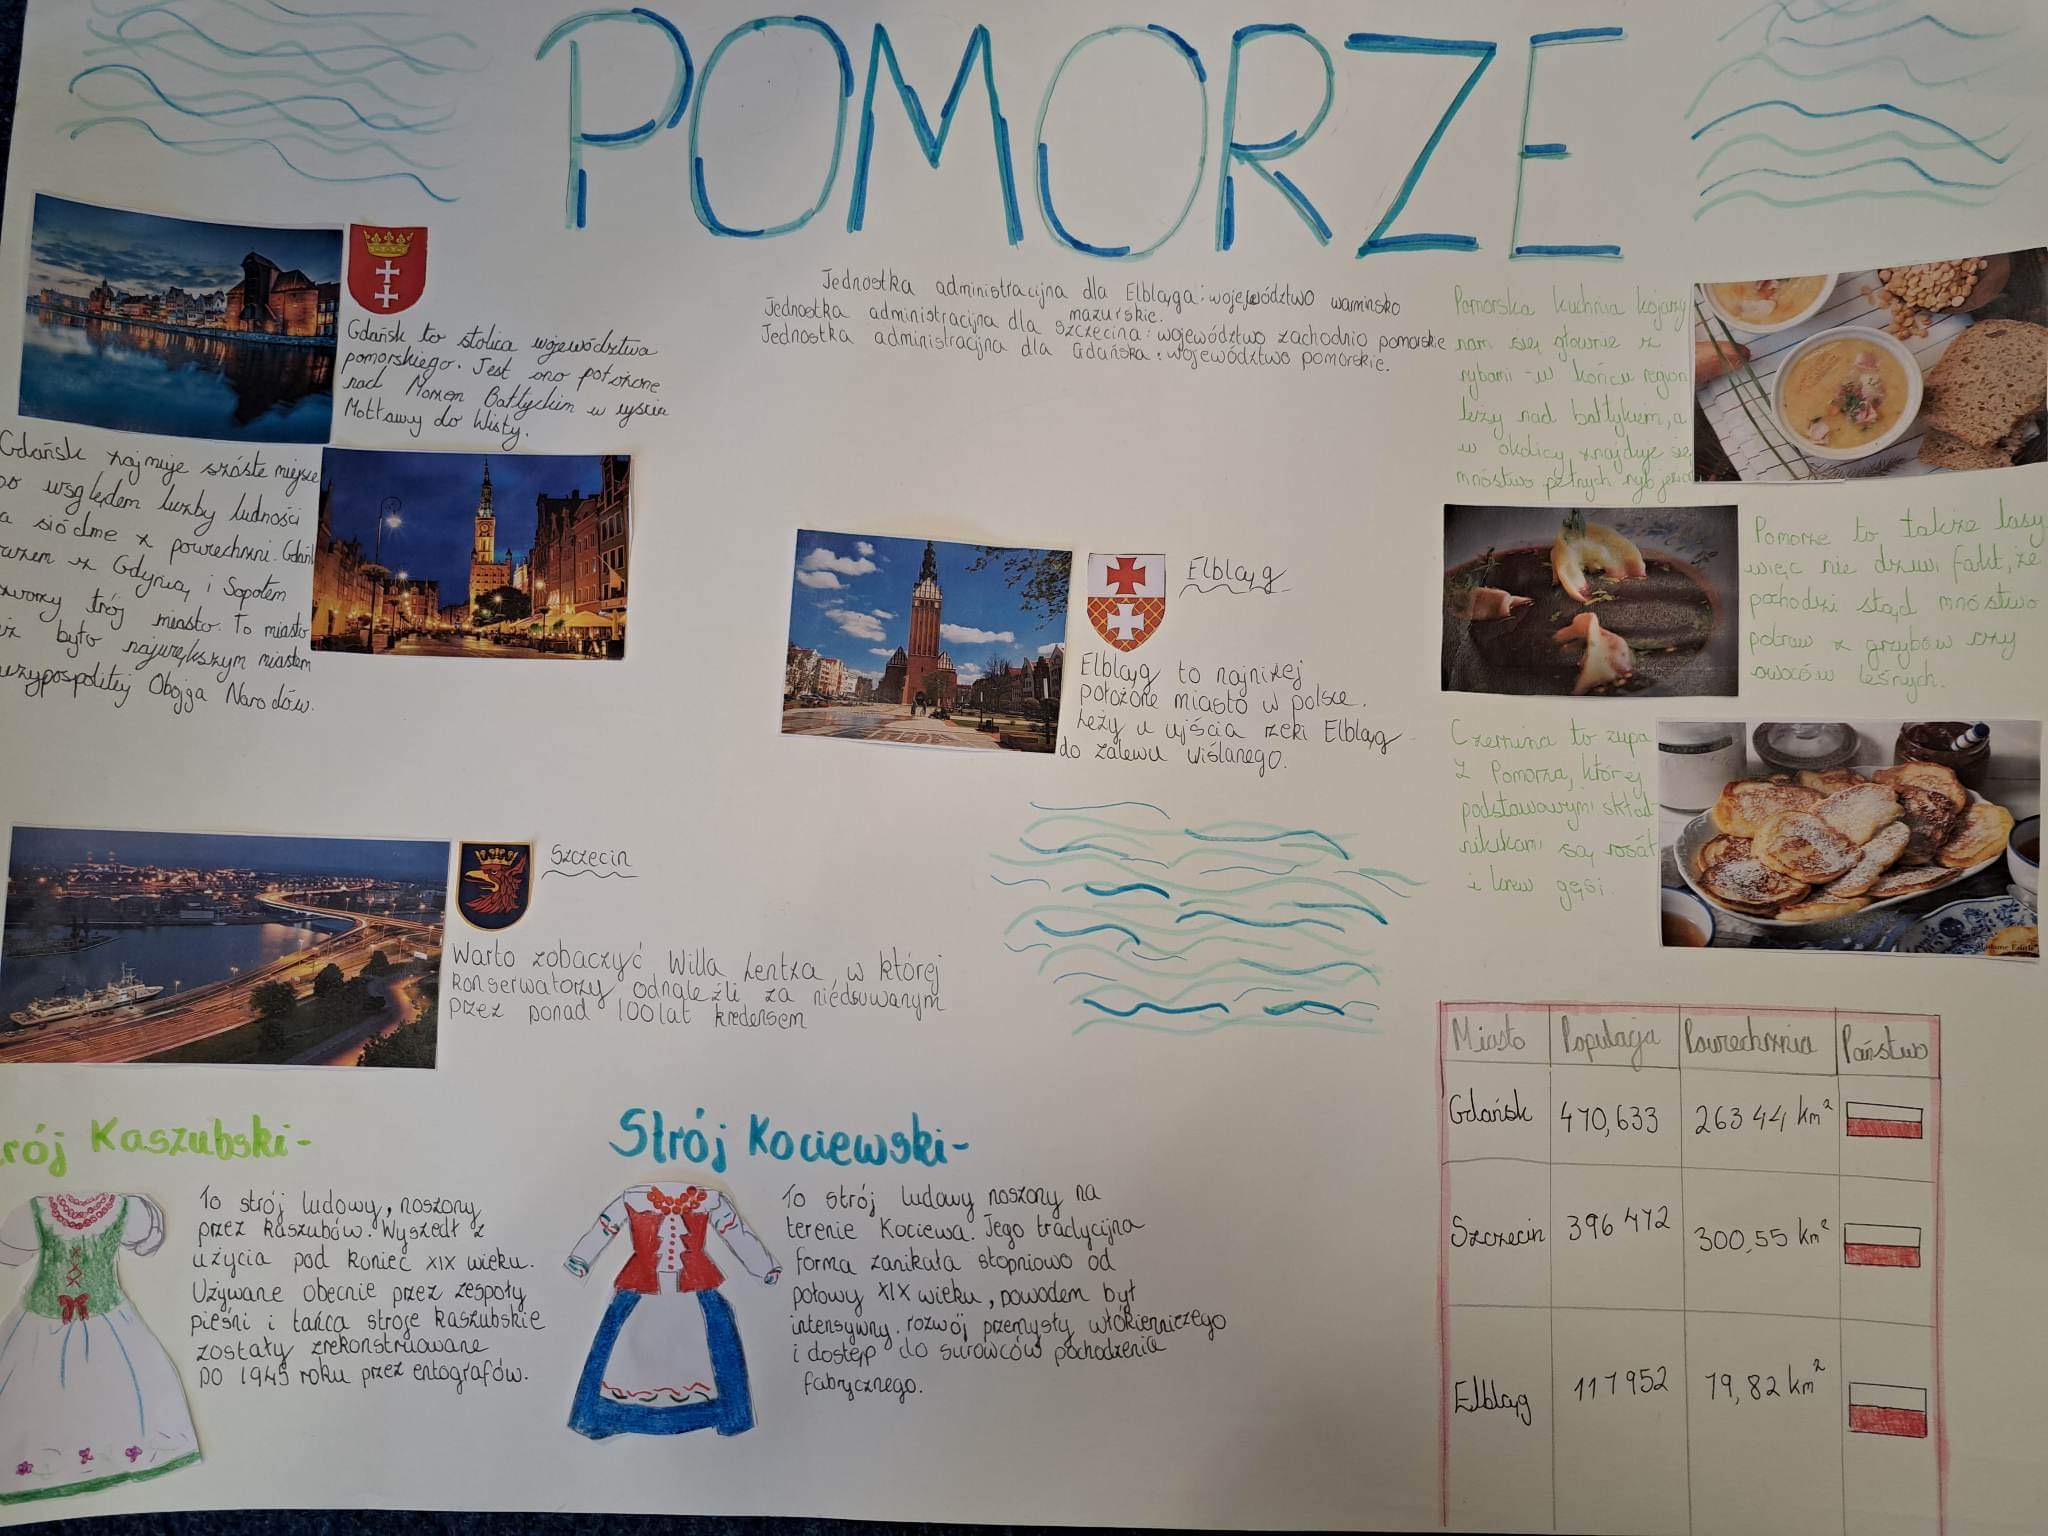 POMORZE
Jednostka administracijna dla Elbląga: województwo warmińsko
mazurskie.
Jednostka administracijna dla Szczecina: województwo zachodnio pomorskie
Jednostka administracijna dla Gdańska: województwo pomorskie.
Gdańsk to stolica województwa
pomorskiego. Jest ono położone
nad Morzem Bałtyckim w ujściu
Mottawy do Wisły.
Gdańsk zajmuje szóste miejsce
po względem liczby ludności
a siódme z powierzchni. Gdańsk
razem z Gdynią i Sopotem
tworzy trój miasto. To miasto
też było największym miastem
rzeczypospolitej Obojga Narodów.
Elbląg
Elbląg to najniżej
położone miasto w polsce.
Leży u ujścia rzeki Elbląg
do zalewu wiślanego.
Szczecin
Warto zobaczyć Willa Lentza w której
konserwatorzy odnaleźli za niedsuwanym
przez ponad 100 lat kredensem
Pomorska kuchnia kojarzy
nam się głównie z
rybami - w końcu region
leży nad bałtykiem, a
w okolicy znajduje się
mnóstwo pełnych ryb jezior
Pomorze to także lasy
więc nie dziwi fakt, że
pochodzi stąd mnóstwo
potraw z grzybów czy
owoców leśnych.
Czernina to zupa
z Pomorza, której
podstawowymi skład-
nikikami są rosół
i krew gęsi.
Madame Edith
rój Kaszubski-
To strój ludowy, noszony
przez Kaszubów. Wyszedł z
użycia pod koniec XIX wieku.
Używane obecnie przez zespoły
pieśni i tańca stroje kaszubskie
zostały zrekonstruowane
po 1945 roku przez entografów.
Strój Kociewski-
To strój ludowy noszony na
terenie Kociewa. Jego tradycyjna
forma zanikała stopniowo od
połowy XIX wieku, powodem był
intensywny rozwój przemysły włókienniczego
i dostęp do surowców pochodzenia
fabrycznego.
Miasto Populacja Powierzchnia Państwo
Gdańsk 470,633 263 44 km²
Szczecin 396 472 300,55 km²
Elbląg 117952 79,82 km²